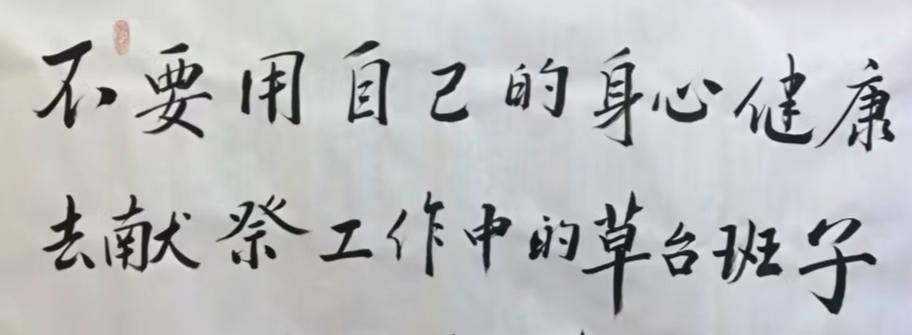 不要用自己的身心健康
去献祭工作中的草台班子